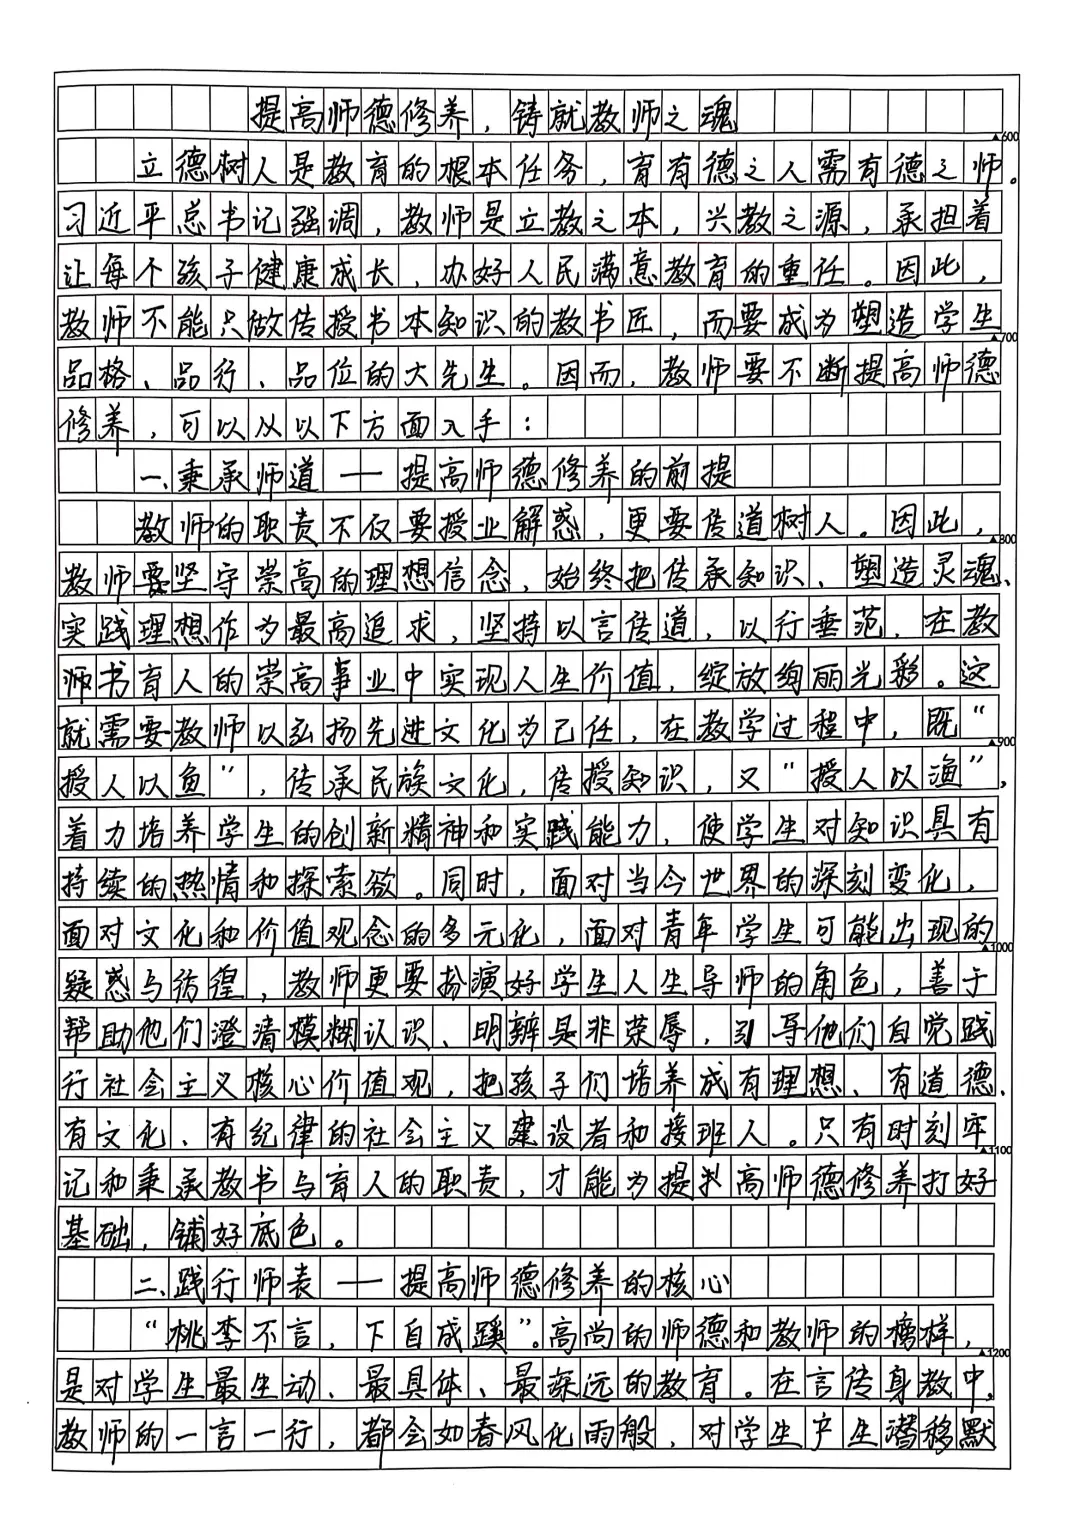 提高师德修养，铸就教师之魂
▲600
立德树人是教育的根本任务，育有德之人需有德之师。
习近平总书记强调，教师是立教之本，兴教之源，承担着
让每个孩子健康成长、办好人民满意教育的重任。因此，
教师不能只做传授书本知识的教书匠，而要成为塑造学生
▲700
品格、品行、品位的大先生。因而，教师要不断提高师德
修养，可以从以下方面入手：
一、秉承师道——提高师德修养的前提
教师的职责不仅要授业解惑，更要传道树人。因此，
▲800
教师要坚守崇高的理想信念，始终把传承知识、塑造灵魂、
实践理想作为最高追求，坚持以言传道，以行垂范，在教
师书育人的崇高事业中实现人生价值，绽放绚丽光彩。这
就需要教师以弘扬先进文化为己任，在教学过程中，既“
▲900
授人以鱼”，传承民族文化，传授知识，又“授人以渔”，
着力培养学生的创新精神和实践能力，使学生对知识具有
持续的热情和探索欲。同时，面对当今世界的深刻变化，
面对文化和价值观念的多元化，面对青年学生可能出现的
▲1000
疑惑与彷徨，教师更要扮演好学生人生导师的角色，善于
帮助他们澄清模糊认识、明辨是非荣辱，引导他们自觉践
行社会主义核心价值观，把孩子们培养成有理想、有道德、
有文化、有纪律的社会主义建设者和接班人。只有时刻牢
▲1100
记和秉承教书与育人的职责，才能为提升高师德修养打好
基础，铺好底色。
二、践行师表——提高师德修养的核心
“桃李不言，下自成蹊”。高尚的师德和教师的榜样，
▲1200
是对学生最生动、最具体、最深远的教育。在言传身教中，
教师的一言一行，都会如春风化雨般，对学生产生潜移默